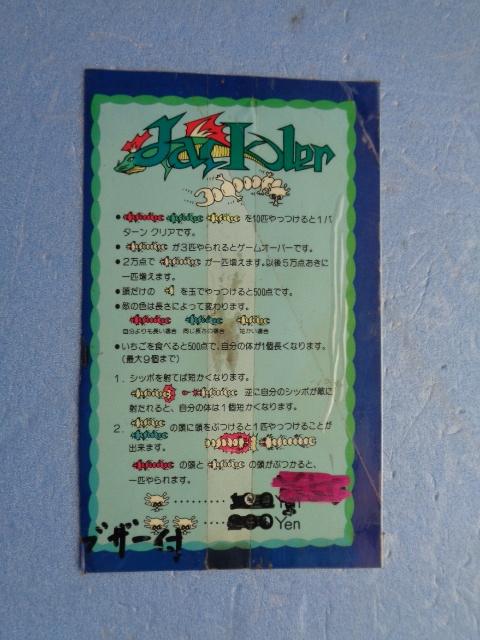 Jackler
● を10匹やっつけると1パ
ターン クリアです。
● が3匹やられるとゲームオーバーです。
● 2万点で が一匹増えます。以後5万点おきに
一匹増えます。
● 頭だけの を玉でやっつけると500点です。
● 敵の色は長さによって変わります。
自分よりも長い場合 同じ長さの場合 短かい場合
● いちごを食べると500点で、自分の体が1個長くなります。
(最大9個まで)
1. シッポを射てば短かくなります。
逆に自分のシッポが敵に
射たれると、自分の体は1個短かくなります。
2. の頭に頭をぶつけると1匹やっつけることが
出来ます。
の頭と の頭がぶつかると、
一匹やられます。
Yen
ブザー付